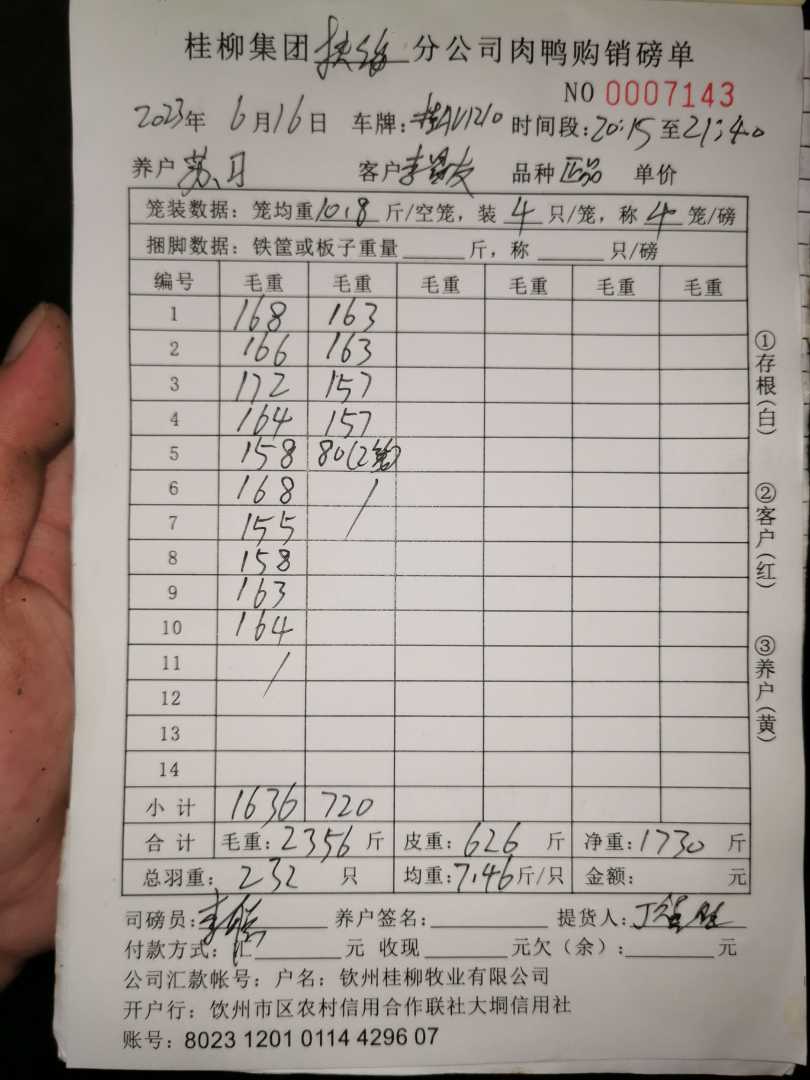 桂柳集团扶绥分公司肉鸭购销磅单
NO 0007143
2023年 6月16日 车牌:桂AV1210 时间段:20:15至21:40
养户 苏月 客户 李 友 品种 正品 单价
笼装数据: 笼均重10.8斤/空笼, 装4只/笼, 称4笼/磅
捆脚数据: 铁筐或板子重量______斤, 称______只/磅
编号 毛重 毛重 毛重 毛重 毛重 毛重
1 168 163
2 166 163
3 172 157
4 164 157
5 158 80(2笼)
6 168 /
7 155
8 158
9 163
10 164
11 /
12
13
14
小计 1636 720
合计 毛重:2356斤 皮重:626斤 净重:1730斤
总羽重: 232 只 均重:7.46斤/只 金额: 元
司磅员:李 养户签名: 提货人:
付款方式:汇______元 收现______元欠(余):______元
公司汇款帐号: 户名: 钦州桂柳牧业有限公司
开户行: 钦州市区农村信用合作联社大垌信用社
账号: 8023 1201 0114 4296 07
①存根(白)
②客户(红)
③养户(黄)